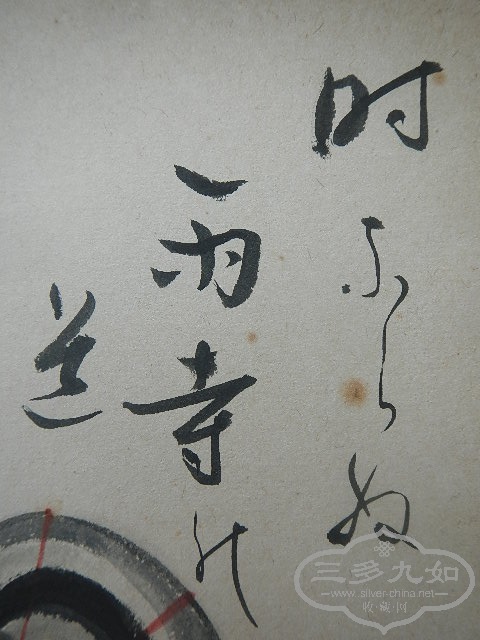 时ならぬ
一雨寺の
道
三多九如
www.silver-china.net
收藏网